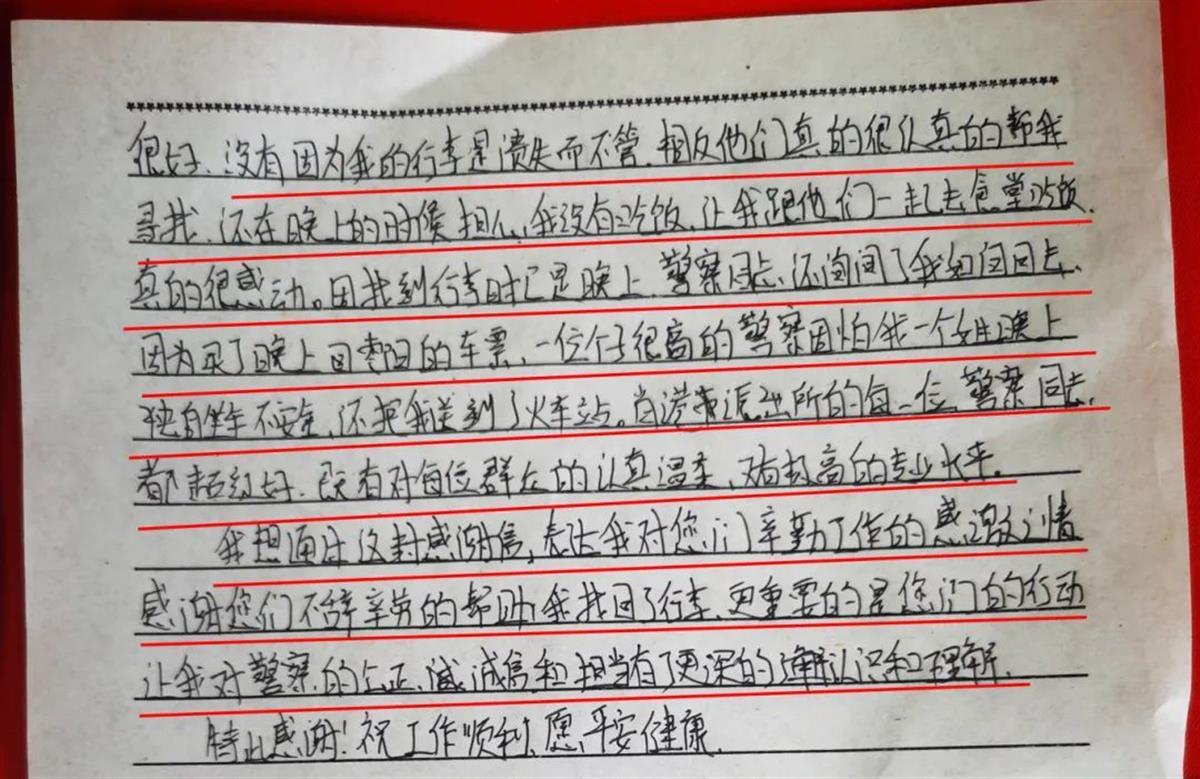 很好、没有因为我的行李是遗失而不管、相反他们真的很认真的帮我
寻找、还在晚上的时候担心我没有吃饭、让我跟他们一起去食堂吃饭、
真的很感动。因找到行李时已是晚上、警察同志、还询问了我如何回去、
因为买了晚上回枣阳的车票、一位个子很高的警察因怕我一个女生晚上
独自坐车不安全、还把我送到了火车站。肖港 派出所的每一位、警察同志、
都超级好、既有对每位群众的认真温柔、又有极高的专业水平、
我想通过这封感谢信、表达我对您们辛勤工作的感激之情
感谢您们不辞辛劳的帮助我找回了行李、更重要的是您们的行动
让我对警察的公正、诚信和担当有了更深的认识和理解、
特此感谢！祝工作顺利、愿平安健康、